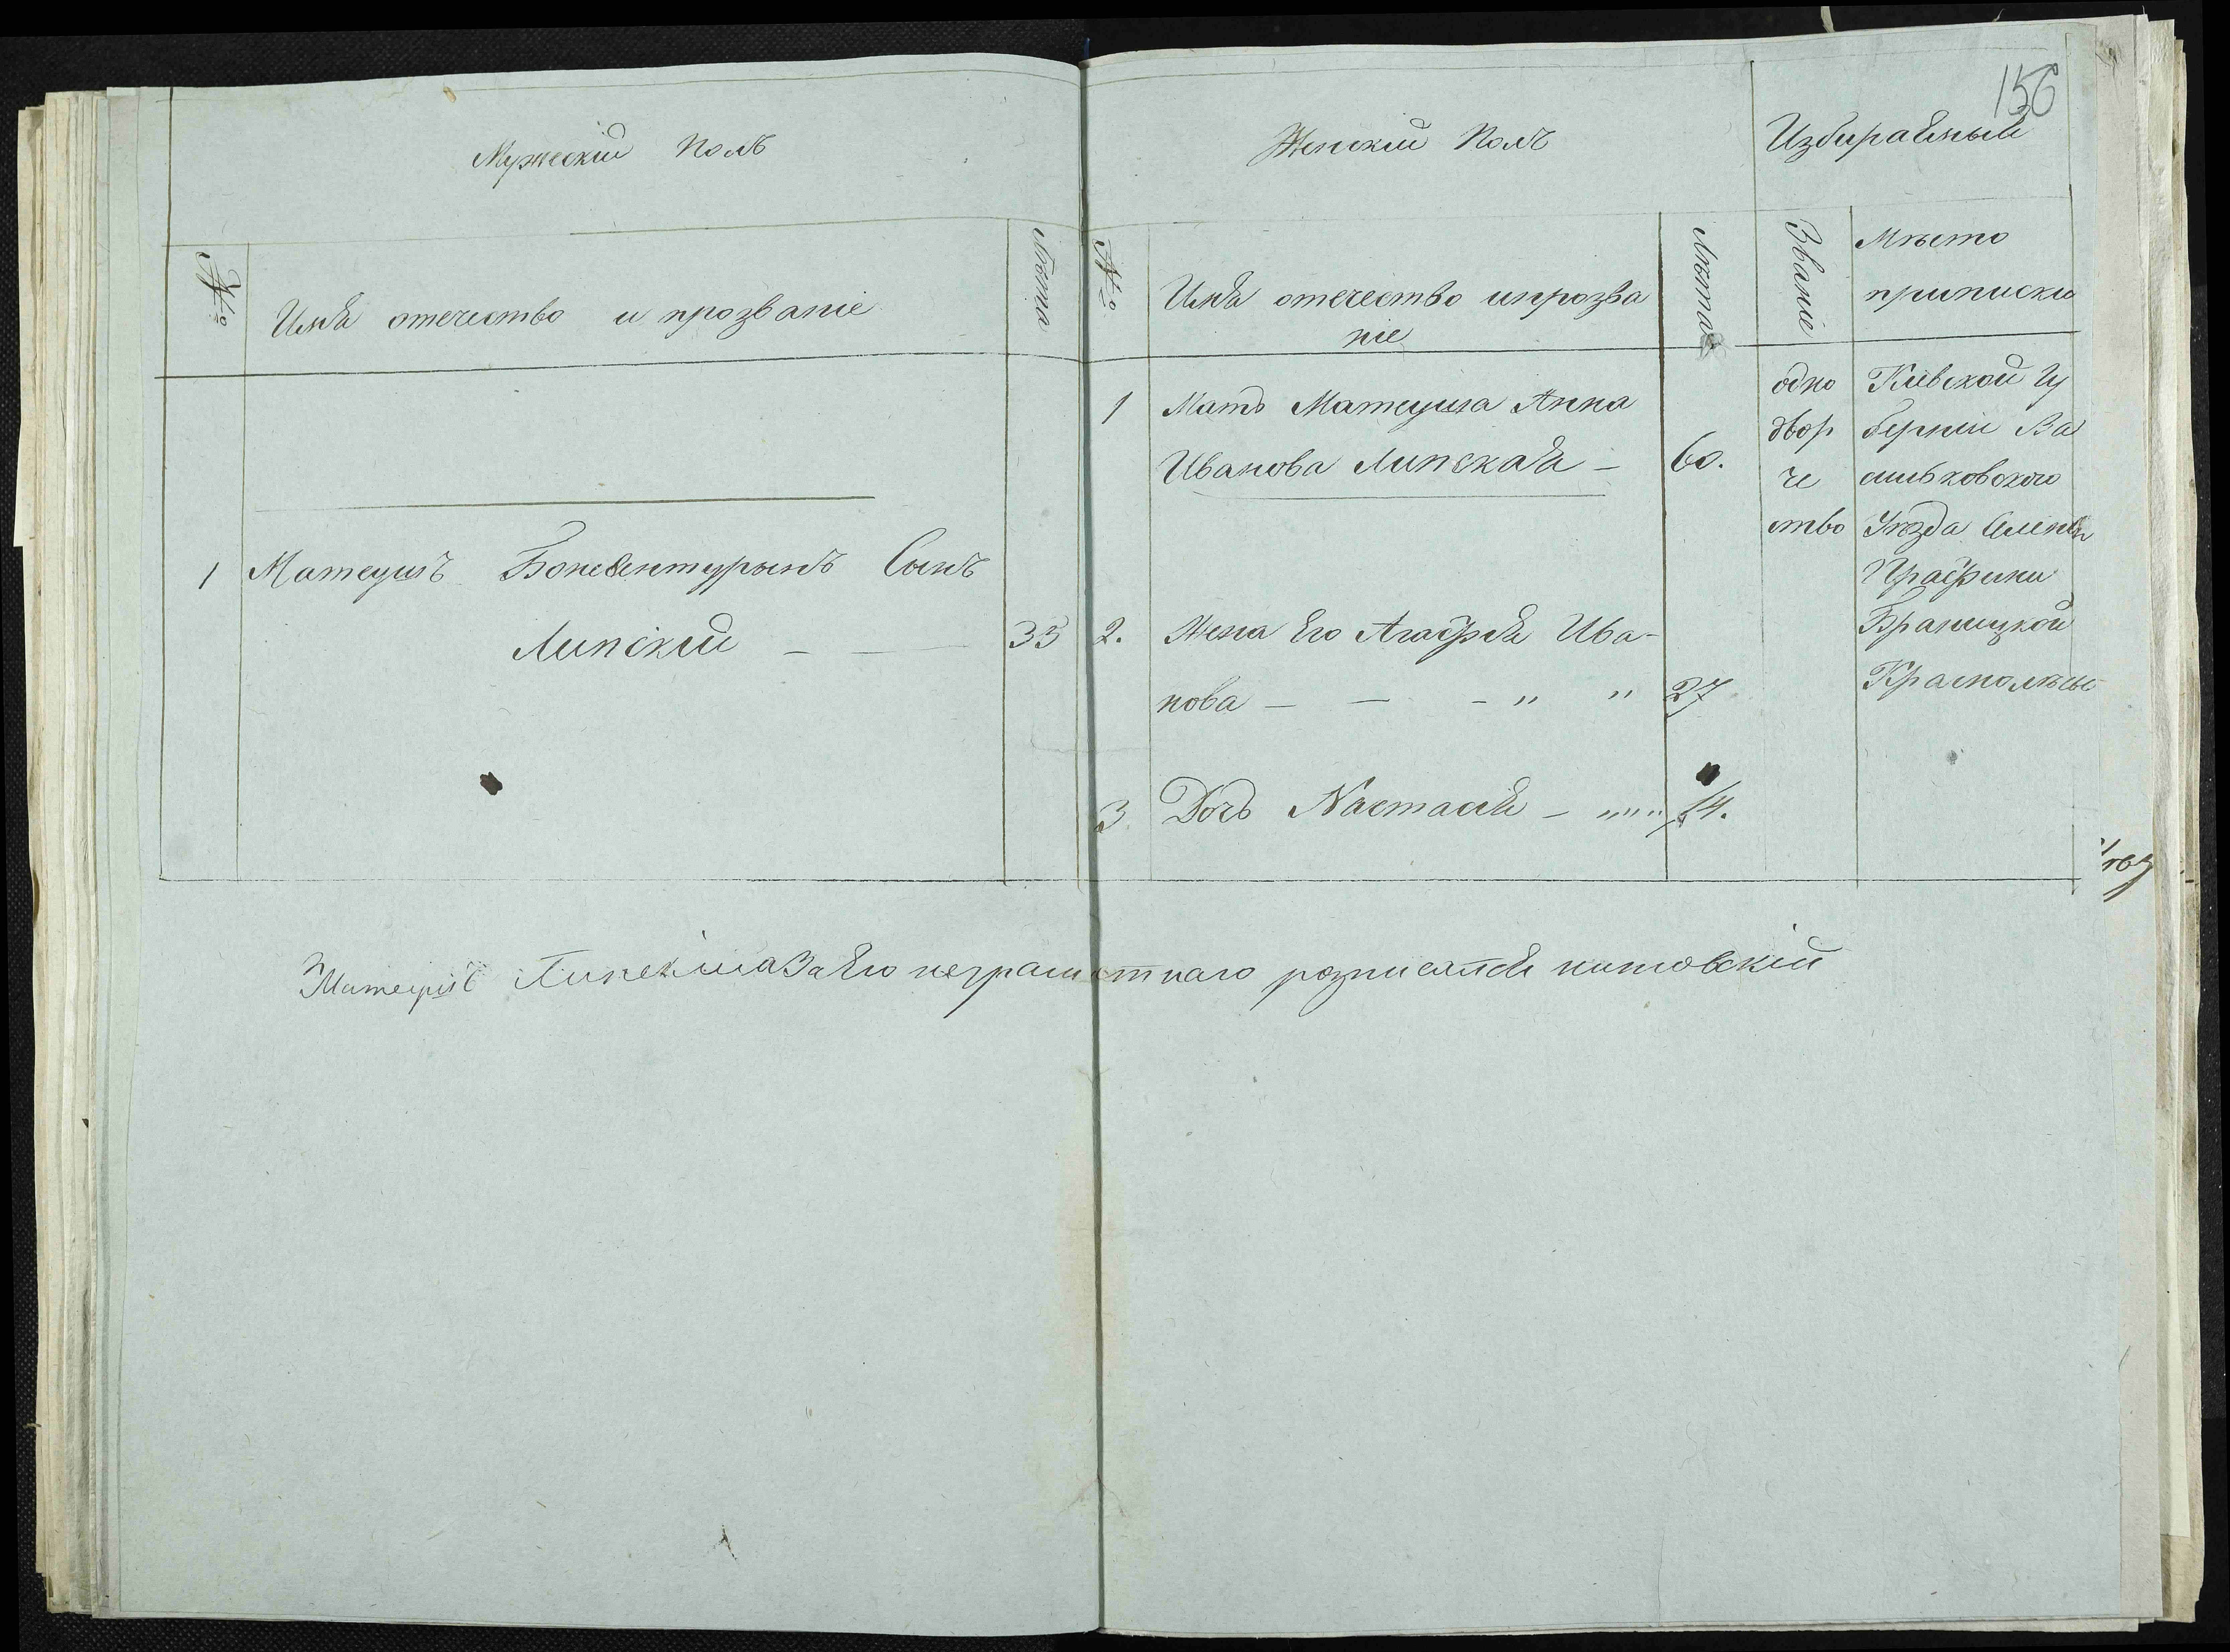 156
Мужескій Полъ
Женскій Полъ
Избираемый
№
Имя отечество и прозваніе
Лѣта
№
Имя отечество ипрозва
ніе
Лѣта
Званіе
Мѣсто
приписки
1 Мать Матеуша Анна
Иванова Липская – 60.
одно
двор
че
ство
Кіевской Гу
берніи Ва
сильковского
Уѣзда
Графини
Браницкой
1 Матеушъ Боневентурынъ Сынъ
Липскій – — 35
2. Жена Его Агафія Ива-
нова – – – " " 27
3. Дочь Настасія – """ 14.
Матеушъ Липскій а За Его неграмотнаго розписался